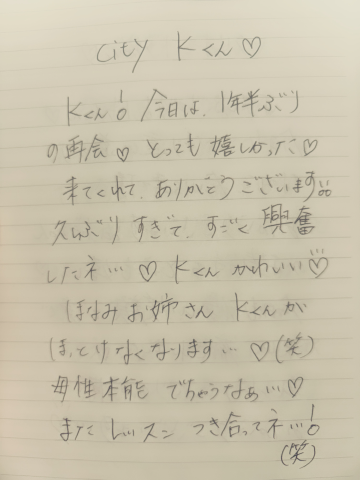 city Kくん♡
Kくん! 今日は、1年半ぶり
の再会♡ とっても嬉しかった♡
来てくれて、ありがとうございます!!
久しぶりすぎて、すごく興奮
したネ… ♡ Kくん かわいい♡
ほなみお姉さん Kくんが
ほっとけなくなります… ♡(笑)
母性本能 でちゃうなぁ…♡
また レッスン つき合ってネ…!
(笑)